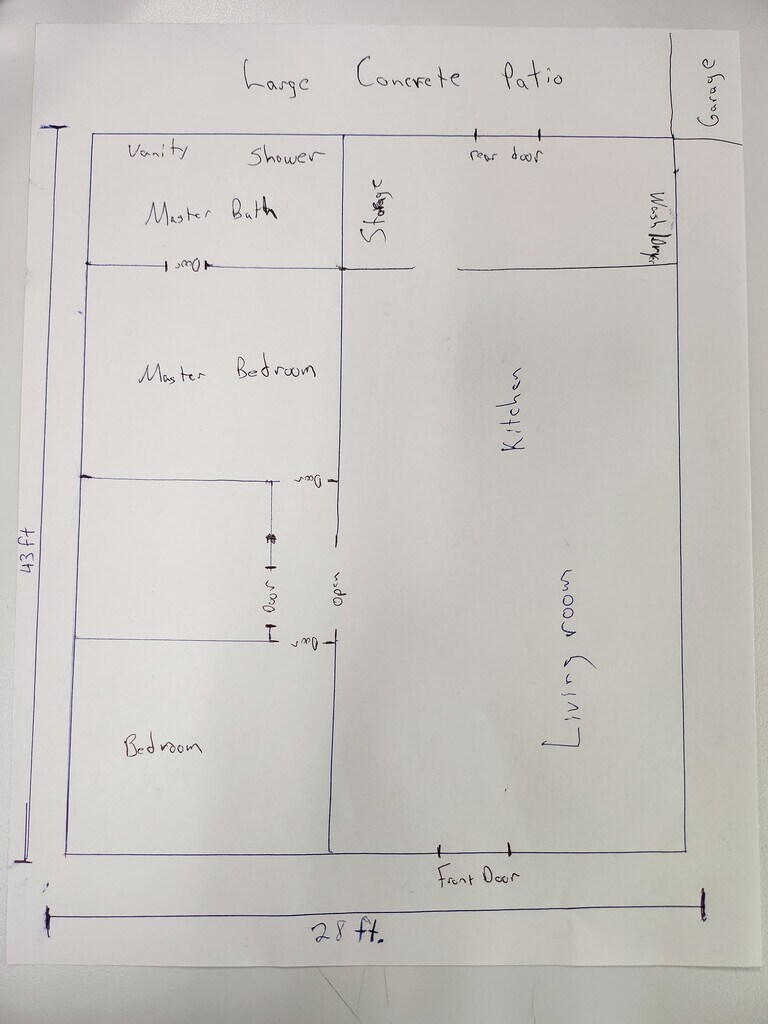 Large Concrete Patio
Garage
Vanity
Shower
rear door
Master Bath
Storage
Wash/
Door
Master Bedroom
Kitchen
Door
43 ft
Door
Open
Door
Living room
Bedroom
Front Door
28 ft.